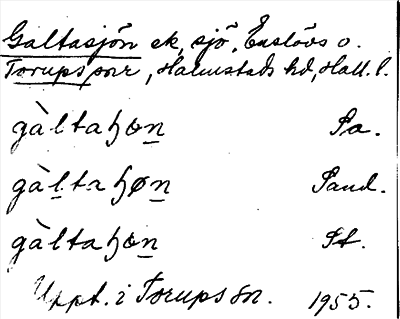 Galtasjön ek, sjö, Enslövs o.
Torups snr, Halmstads hd, Hall. l.
gàltaɧøn Pa.
gàltaɧøn Pand.
gàltaɧøn St.
Uppt. i Torups sn. 1955.